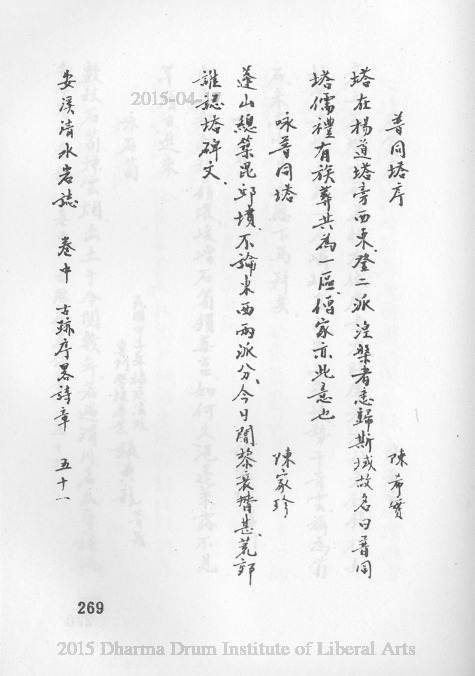 普同塔序 陳希實
塔在楊道塔旁西東、登二派涅槃者悉歸斯域故名曰普同
塔儒禮有族葬共為一區、僧家亦此意也
咏普同塔 陳家珍
蓬山總築昆邱墳、不論東西兩派分、今日闍黎衰替甚、荒郊
誰認塔碑文、
安溪清水岩誌 卷中 古跡序畧詩章 五十一
269
2015-04-17
2015 Dharma Drum Institute of Liberal Arts